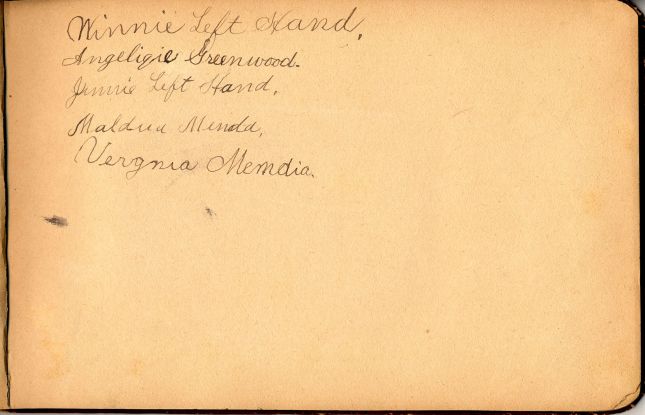 Winnie Left Hand.
Angeligie Greenwood.
Jennie Left Hand.
Maldua Menda.
Vergnia Memdia.